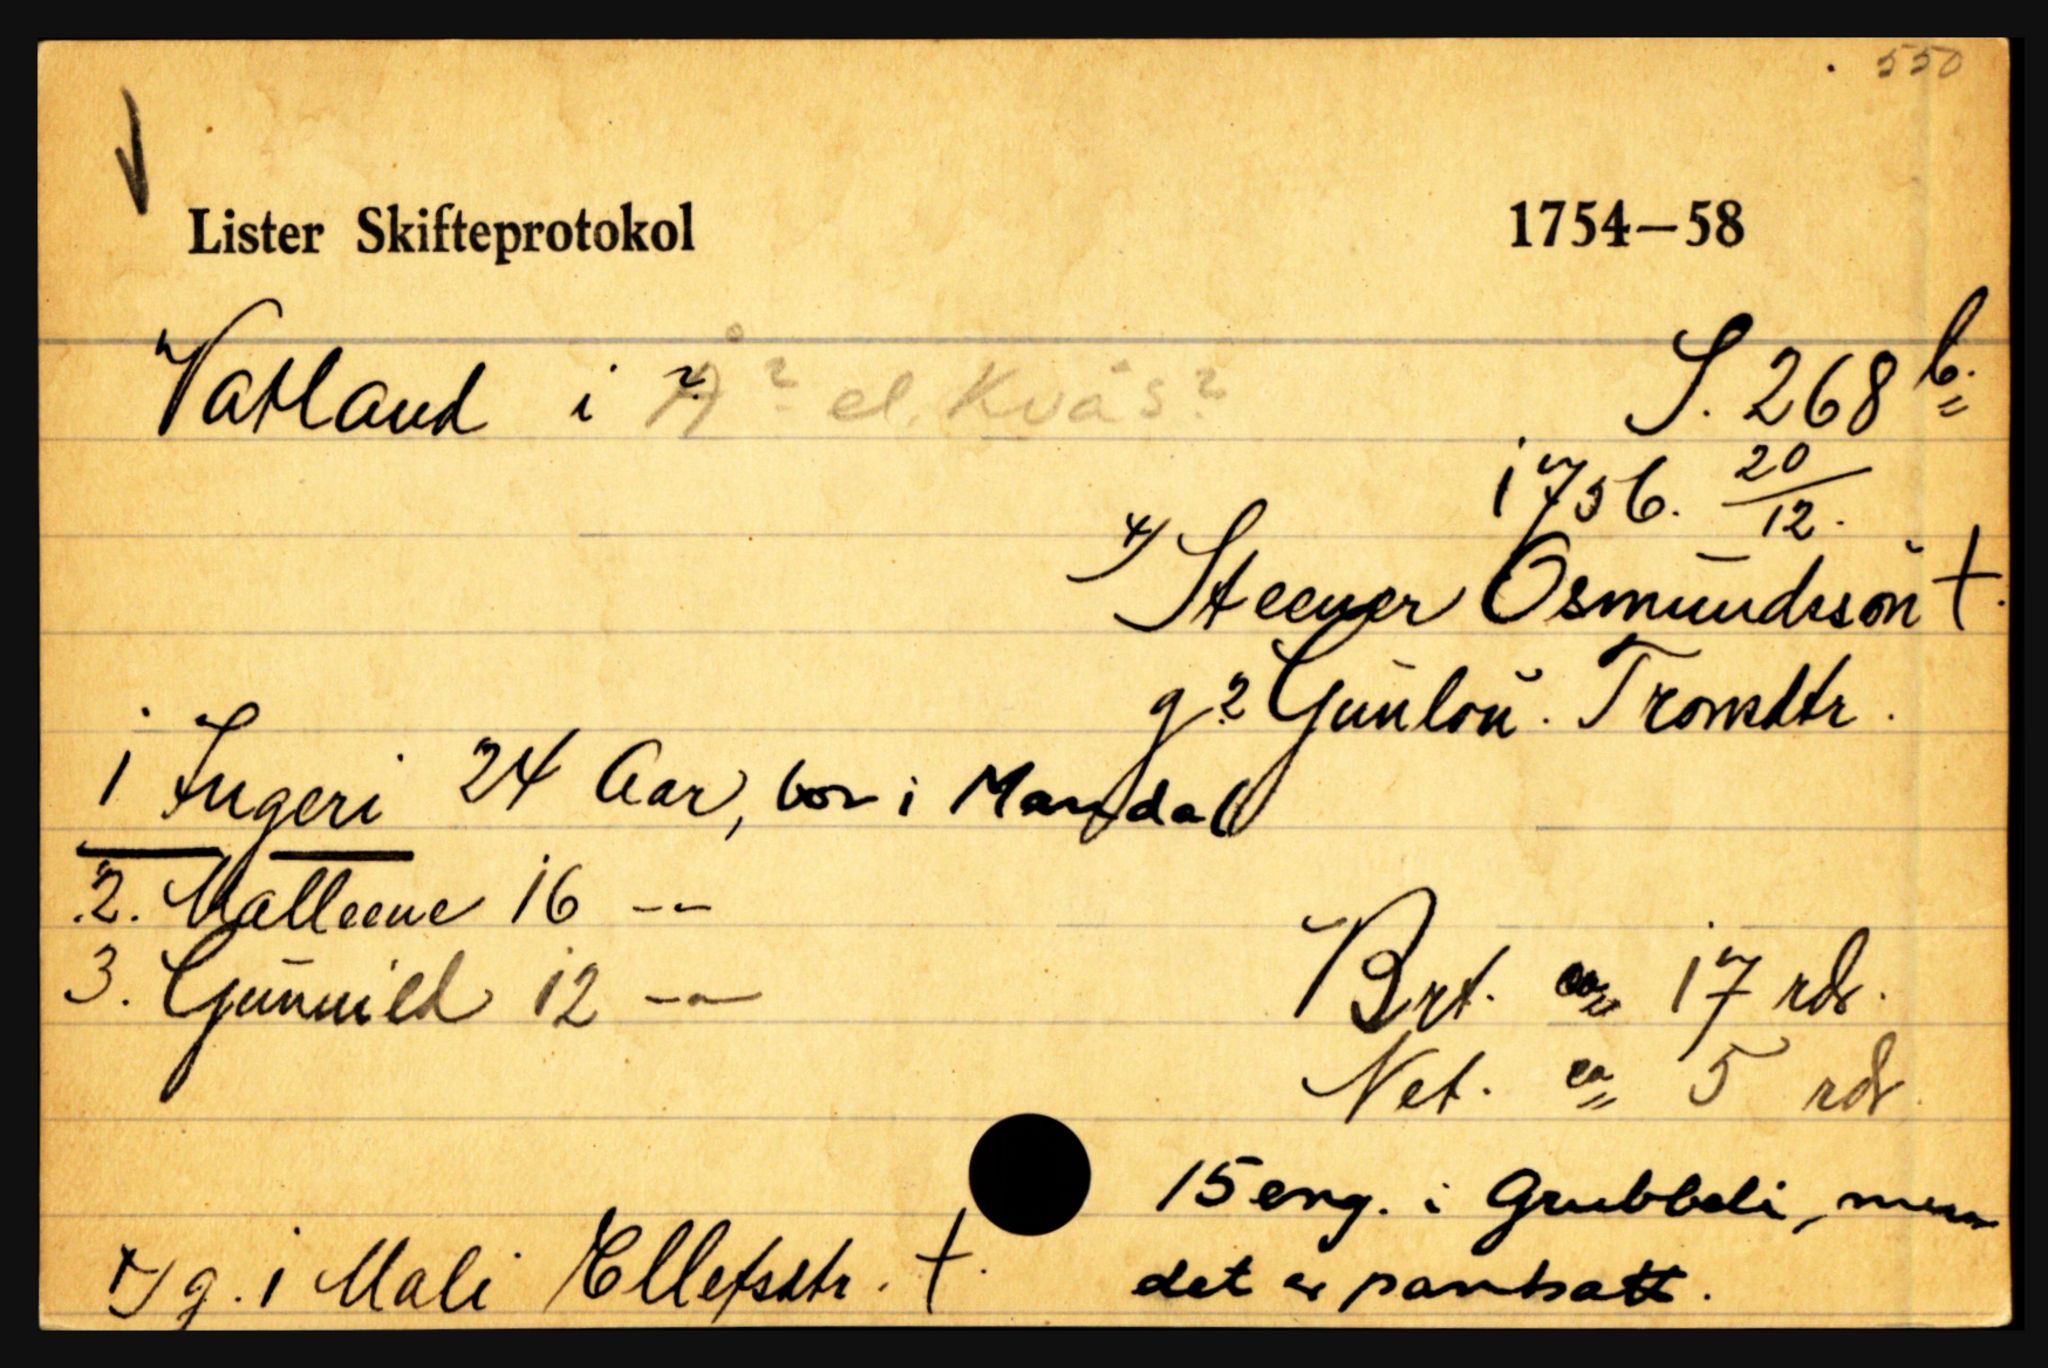 550
Lister Skifteprotokol 1754-58
Vatland i ? Å? el. Kvås? S. 268 b.
1756. 20/12.
x/ Steener Osmundssøn †.
g. 2 Gunlou. Tromsdtr.
1 Ingeri 24 Aar, bor i Mandal
2. Malleene 16 -"-
3. Gunnild 12 -"-
Brt. ca 17 rdr.
Net. ca 5 rdr.
15 eng. i Grubbeli, men
det er pantsatt.
x/ g. 1 Mali Ellefsdtr. †.